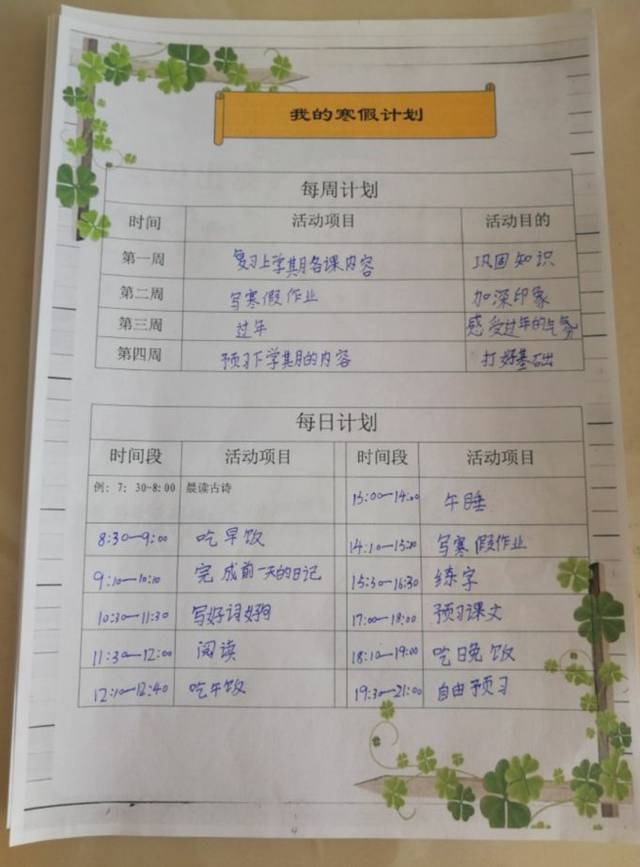 我的寒假计划
每周计划
时间 活动项目 活动目的
第一周 复习上学期各课内容 巩固知识
第二周 写寒假作业 加深印象
第三周 过年 感受过年的气氛
第四周 预习下学期的内容 打好基础
每日计划
时间段 活动项目 时间段 活动项目
例：7：30-8:00 晨读古诗 13:00—14:00 午睡
8:30—9:00 吃早饭 14:10—15:20 写寒假作业
9:10—10:10 完成前一天的日记 15:30—16:30 练字
10:30—11:30 写好词好句 17:00—18:00 预习课文
11:30—12:00 阅读 18:10—19:00 吃晚饭
12:10—12:40 吃午饭 19:30—21:00 自由预习